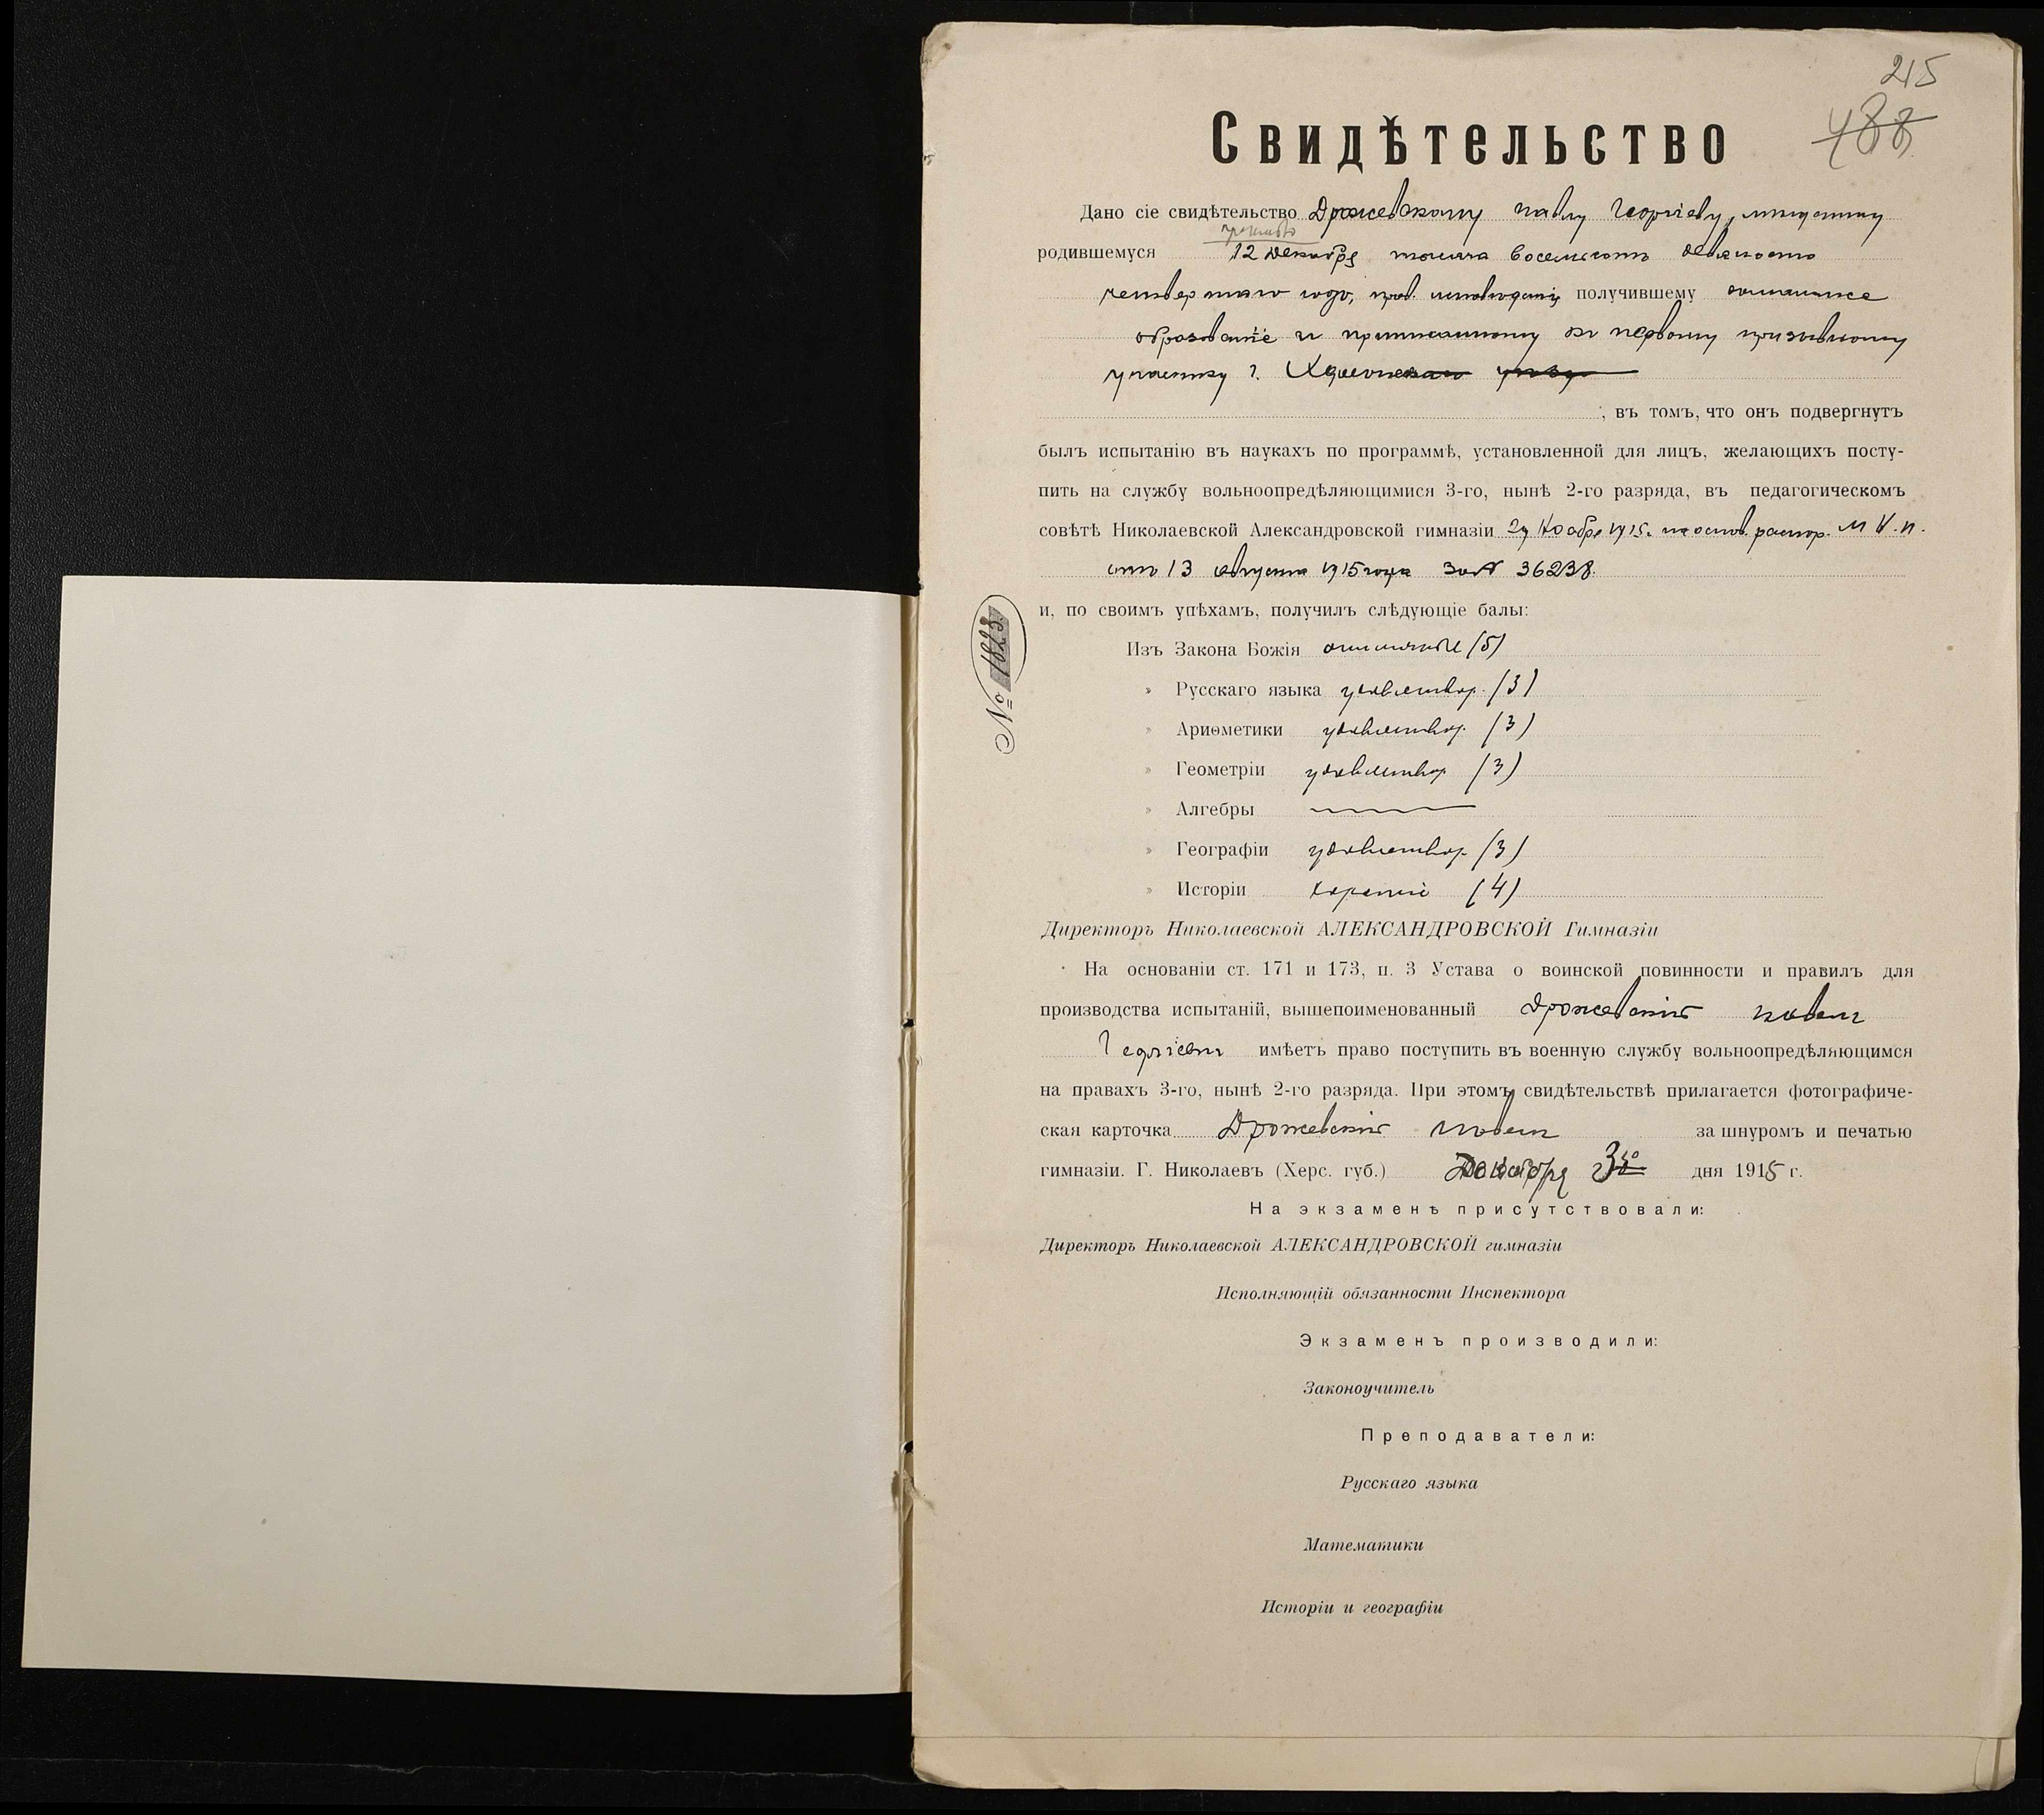 215
488
Свидѣтельство
Дано сіе свидѣтельство Дрожевскому Павлу Георгіеву, мѣщанину
родившемуся 12 Декабря тысяча восемьсотъ девяносто
четвертаго года, прав. исповѣданія получившему домашнее
образованіе и приписанному къ первому призывному
участку г.
, въ томъ, что онъ подвергнутъ
былъ испытанію въ наукахъ по программѣ, установленной для лицъ, желающихъ посту-
пить на службу вольноопредѣляющимися 3-го, нынѣ 2-го разряда, въ педагогическомъ
совѣтѣ Николаевской Александровской гимназіи Ноября 1915 г. на основ. распор. М. Н. П.
отъ 13 августа 1915 года за № 36238.
и, по своимъ успѣхамъ, получилъ слѣдующіе балы:
№ 1823
Изъ Закона Божія отличные (5)
» Русскаго языка удовлетвор. (3)
» Ариѳметики удовлетвор. (3)
» Геометріи удовлетвор (3)
» Алгебры
» Географіи удовлетвор. (3)
» Исторіи хорошіе (4)
Директоръ Николаевской АЛЕКСАНДРОВСКОЙ Гимназіи
На основаніи ст. 171 и 173, п. 3 Устава о воинской повинности и правилъ для
производства испытаній, вышепоименованный Дрожевскій Павелъ
Георгіевъ имѣетъ право поступить въ военную службу вольноопредѣляющимся
на правахъ 3-го, нынѣ 2-го разряда. При этомъ свидѣтельствѣ прилагается фотографиче-
ская карточка Дрожевскій Павелъ за шнуромъ и печатью
гимназіи. Г. Николаевъ (Херс. губ.) Декабря 3 дня 1915 г.
На экзаменѣ присутствовали:
Директоръ Николаевской АЛЕКСАНДРОВСКОЙ гимназіи
Исполняющій обязанности Инспектора
Экзаменъ производили:
Законоучитель
Преподаватели:
Русскаго языка
Математики
Исторіи и географіи